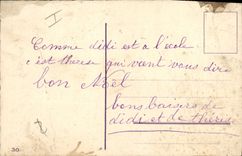 I
Comme didi est à l'école
c'est therese qui vient vous dire
bon Noël
bons baisers de
didi et de thérèse
30